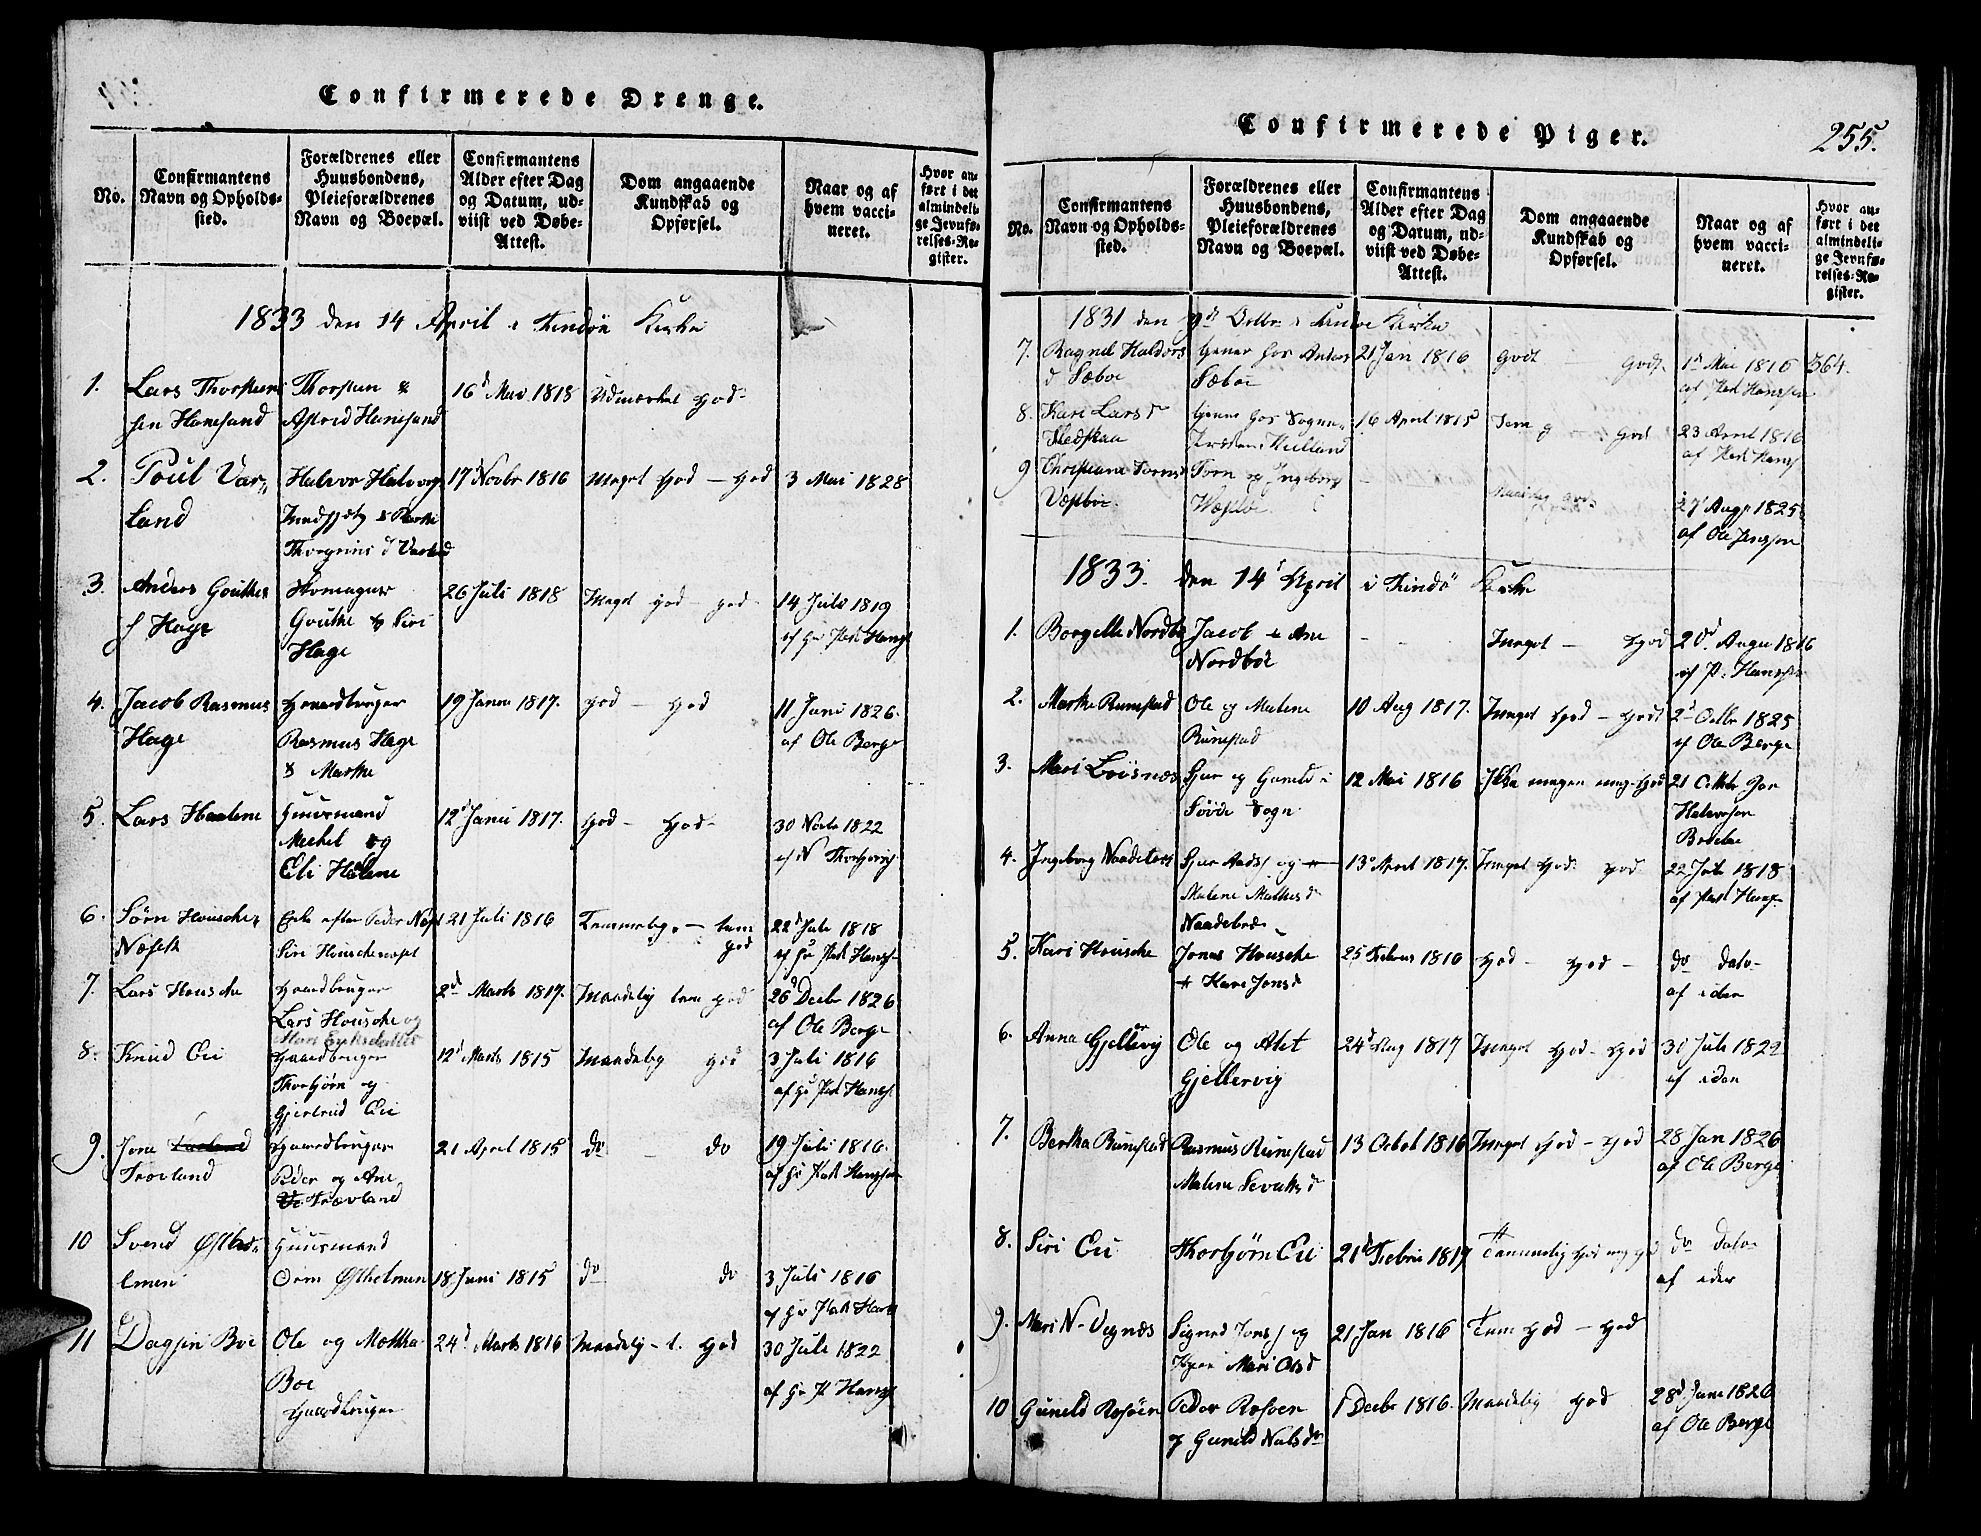 Confirmerede Drenge.
No.
Confirmantens
Navn og Opholds-
sted.
Forældrenes eller
Huusbondens,
Pleieforældrenes
Navn og Boepæl.
Confirmantens
Alder efter Dag
og Datum, ud-
viist ved Døbe-
Attest.
Dom angaaende
Kundskab og
Opførsel.
Naar og af
hvem vacci-
neret.
Hvor an-
ført i det
almindeli-
ge Jevnfø-
relses-Re-
gister.
1833 den 14 April i Findöe Kirke
1.
Lars Thorsten
sen Hanesand
Thorsten &
Astrid Hanesand
16d Mai 1818
Udmærket God
2.
Poul Var-
land
Halvor Halvors
Thorgrims d Varland
17 Novbr 1816
Meget God - God
3 Mai 1828
3.
Anders Gouthes
s Hage
Skomager
Gouthe & Siri
Hage
26 Juli 1818
Meget god - god
14 Juli 1819
af Hr Pedr Hanss
4.
Jacob Rasmus
Hage
Gaardbruger
Rasmus Hage
& Marthe
19 Janu 1817.
god - God
11 Juni 1826.
af Ole Berge
5.
Lars Haalene
Huusmand
Michel og
Eli Halene
12d Janu 1817.
God - God
30 Novbr 1822
6.
Sörn Housche-
Næset
Enke efter Peder Næset
Siri Houschenæset
21 Juli 1816
Temmelig - tem
god
22d Jule 1818
af Hr Pedr Hanss
7.
Lars Housche
Gaardbruger
Lars Housche og
2d Marts 1817.
Maadelig tem god
26d Decbr 1826
af Ole Berge
8.
Knud Eei
Gaardbruger
Thorbjörn og
Gjertrud Eei
12d Marts 1815
Maadelig God
3 Juli 1816
af Hr Pedr Hanss
9.
Jone
Trovland
Gaardbruger
Peder og Ane
Trovland
21 April 1815
do - do
19 Juli 1816.
af Hr Pedr Hanssen
10
Svend Østhus-
lmen
Huusmand
Orm Østhelmen
18 Juni 1815
do do
3 Juli 1816
af Hr Pedr Hans
11
Dagfin Boe
Ole og Mættha
Boe
Gaardbruger
24d Marts 1816
Maadelig - t. God
30 Jule 1822
af Hr P Hanss
Confirmerede Piger.
255.
No.
Confirmantens
Navn og Opholds-
sted.
Forældrenes eller
Huusbondens,
Pleieforældrenes
Navn og Boepæl.
Confirmantens
Alder efter Dag
og Datum, ud-
viist ved Døbe-
Attest.
Dom angaaende
Kundskab og
Opførsel.
Naar og af
hvem vacci-
neret.
Hvor an-
ført i det
almindeli-
ge Jevnfø-
relses-Re-
gister.
1831 den 9d Octbr i Findöe Kirke
7.
Ragnel Haldors
d Sæboe
tjener hos Anders
Sæböe
21 Jan 1816
Godt - Godt
1d Mai 1816
af Pedr Hanssen
364.
8.
Kari Lars d
tjener hos Sogne-
16 April 1815
Tem g - God
23 April 1816
af Pedr Hanss
9
Christiane Torns
Væstböe
Torn og Ingeborg
Wæstböe
Maadelig god
27 Aug 1825
af Ole Jenssen
1833. den 14d April i Findö Kirke
1.
Borgelle Nordbö
Jacob & Ane
Nordböe
Meget - God
20d Augu 1816
af P. Hanssen
2.
Marthe Runestad
Ole og Malene
Runestad
10 Aug 1817.
Meget God - Godt
2d Octbr 1825
af Ole Berge
3.
Mari Leisnæs
Gjur og Guneld i
Søvde Sogn
12 Mai 1816
Ikke megen meg-God
21 Octbr
Halvorsen
4.
Ingeborg Naadeland
Malene Mathis d
13d April 1817.
Meget God god
22 Jule 1818
af Pedr Hanss
5.
Kari Housche
Jonas Housche
& Kari Jons d
25 Februs 1816
God - God -
do dato
af iden
6.
Anna Gjellervig
Ole og Alet
Gjellervig
24d Aug 1817
Meget God - God
30 Jule 1822
af iden
7.
Bertha Runestad
Rasmus Runestad
Malene Sevatts d
13 Octob 1816
Meget God - God
28 Jan 1826
af Ole Berge
8.
Siri Eei
Thorbjörn Eei
21d Febru 1817
Temmelig God
do dato
af iden
9.
Mari N- Vegnæs
Sigurd Jons s og
Mari Ols d
21 Jan 1816
Tem God - God
10
Guneld Rosöen
Peder Rosöen
og Guneld Nilsd
1 Decbr 1816.
Maadelig God
28d Jan 1826
af Ole Berge